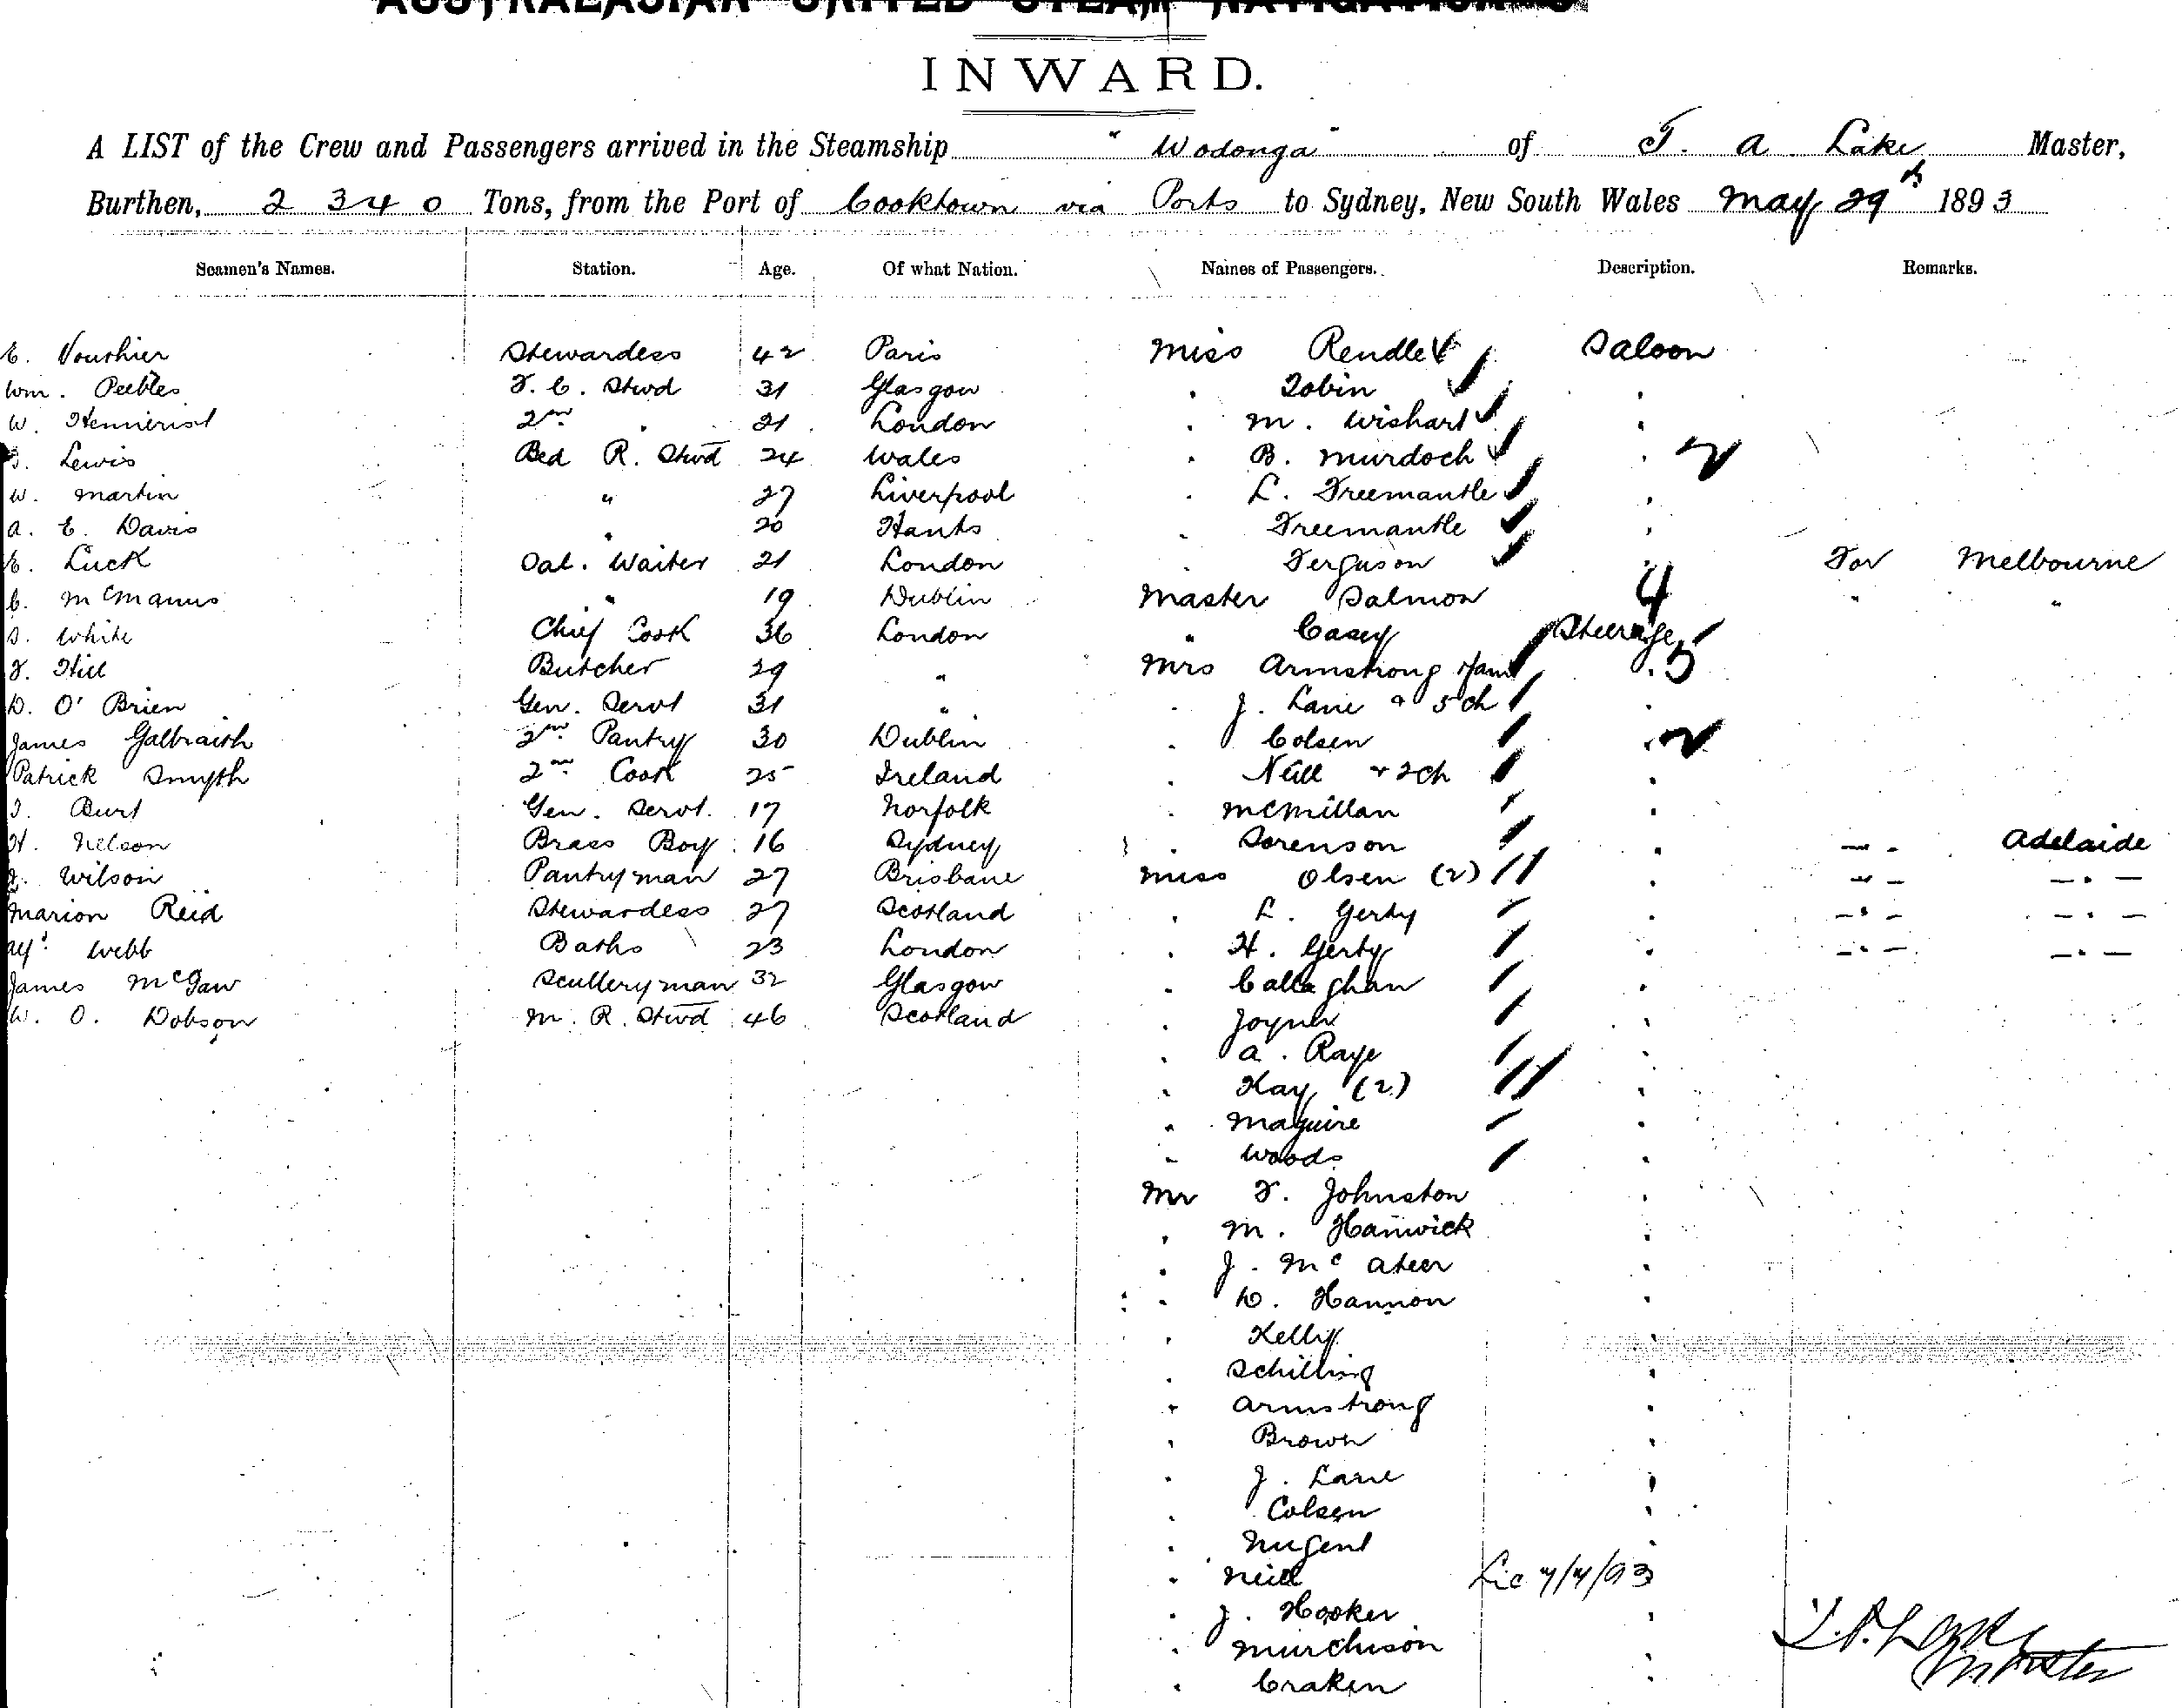 AUSTRALASIAN UNITED STEAM NAVIGATION
INWARD.
A LIST of the Crew and Passengers arrived in the Steamship "Wodonga" of T. A Lake Master,
Burthen, 2340 Tons, from the Port of Cooktown via Ports to Sydney, New South Wales May 29th 1893
Seamen's Names. Station. Age. Of what Nation. Names of Passengers. Description. Remarks.
E. Vouthier Stewardess 42 Paris Miss Rendle Saloon
Wm. Peebles F. C. Stwd 31 Glasgow . Tobin .
W. 2nd . 21 London . M. Wishart .
Lewis Bed R. Stwd 24 Wales . B. Murdoch . 2
W. Martin " 27 Liverpool . L. Freemantle .
A. E. Davis . 20 Hants . Freemantle .
E. Luck Sal. Waiter 21 London . Ferguson . For Melbourne
C. McManus " 19 Dublin Master Salmon 4 " "
S. White Chief Cook 36 London " Casey Steerage
F. Hill Butcher 29 " Mrs Armstrong . 5
D. O'Brien Gen. Servt 31 " . J. Lane & 5 ch .
James Galbraith 2nd Pantry 30 Dublin . Colsen . 2
Patrick Smyth 2nd Cook 25 Ireland . Neill & 2 ch .
Burt Gen. Servt. 17 Norfolk . McMillan .
H. Nelson Brass Boy 16 Sydney . Sorenson . — . Adelaide
Wilson Pantryman 27 Brisbane Miss Olsen (2) . — . — — . —
Marion Reid Stewardess 27 Scotland . L. Gerty . — . — — . —
Webb Baths 23 London . H. Gerty . — . — — . —
James McGaw Sculleryman 32 Glasgow . Callaghan .
W. O. Dobson M. R. Stwd 46 Scotland . Joyner .
. A. Raye .
. Kay (2) .
. Maguire .
. Woods .
Mr F. Johnston .
. M. Hanwick .
. J. McAteer .
. D. Hannon .
. Kelly .
. Schilling .
. Armstrong .
. Brown .
. J. Lane .
. Colsen .
. Nugent .
. Neill
. J. Hooker .
. Murchison .
. Craken .
T. A. Lake
Master